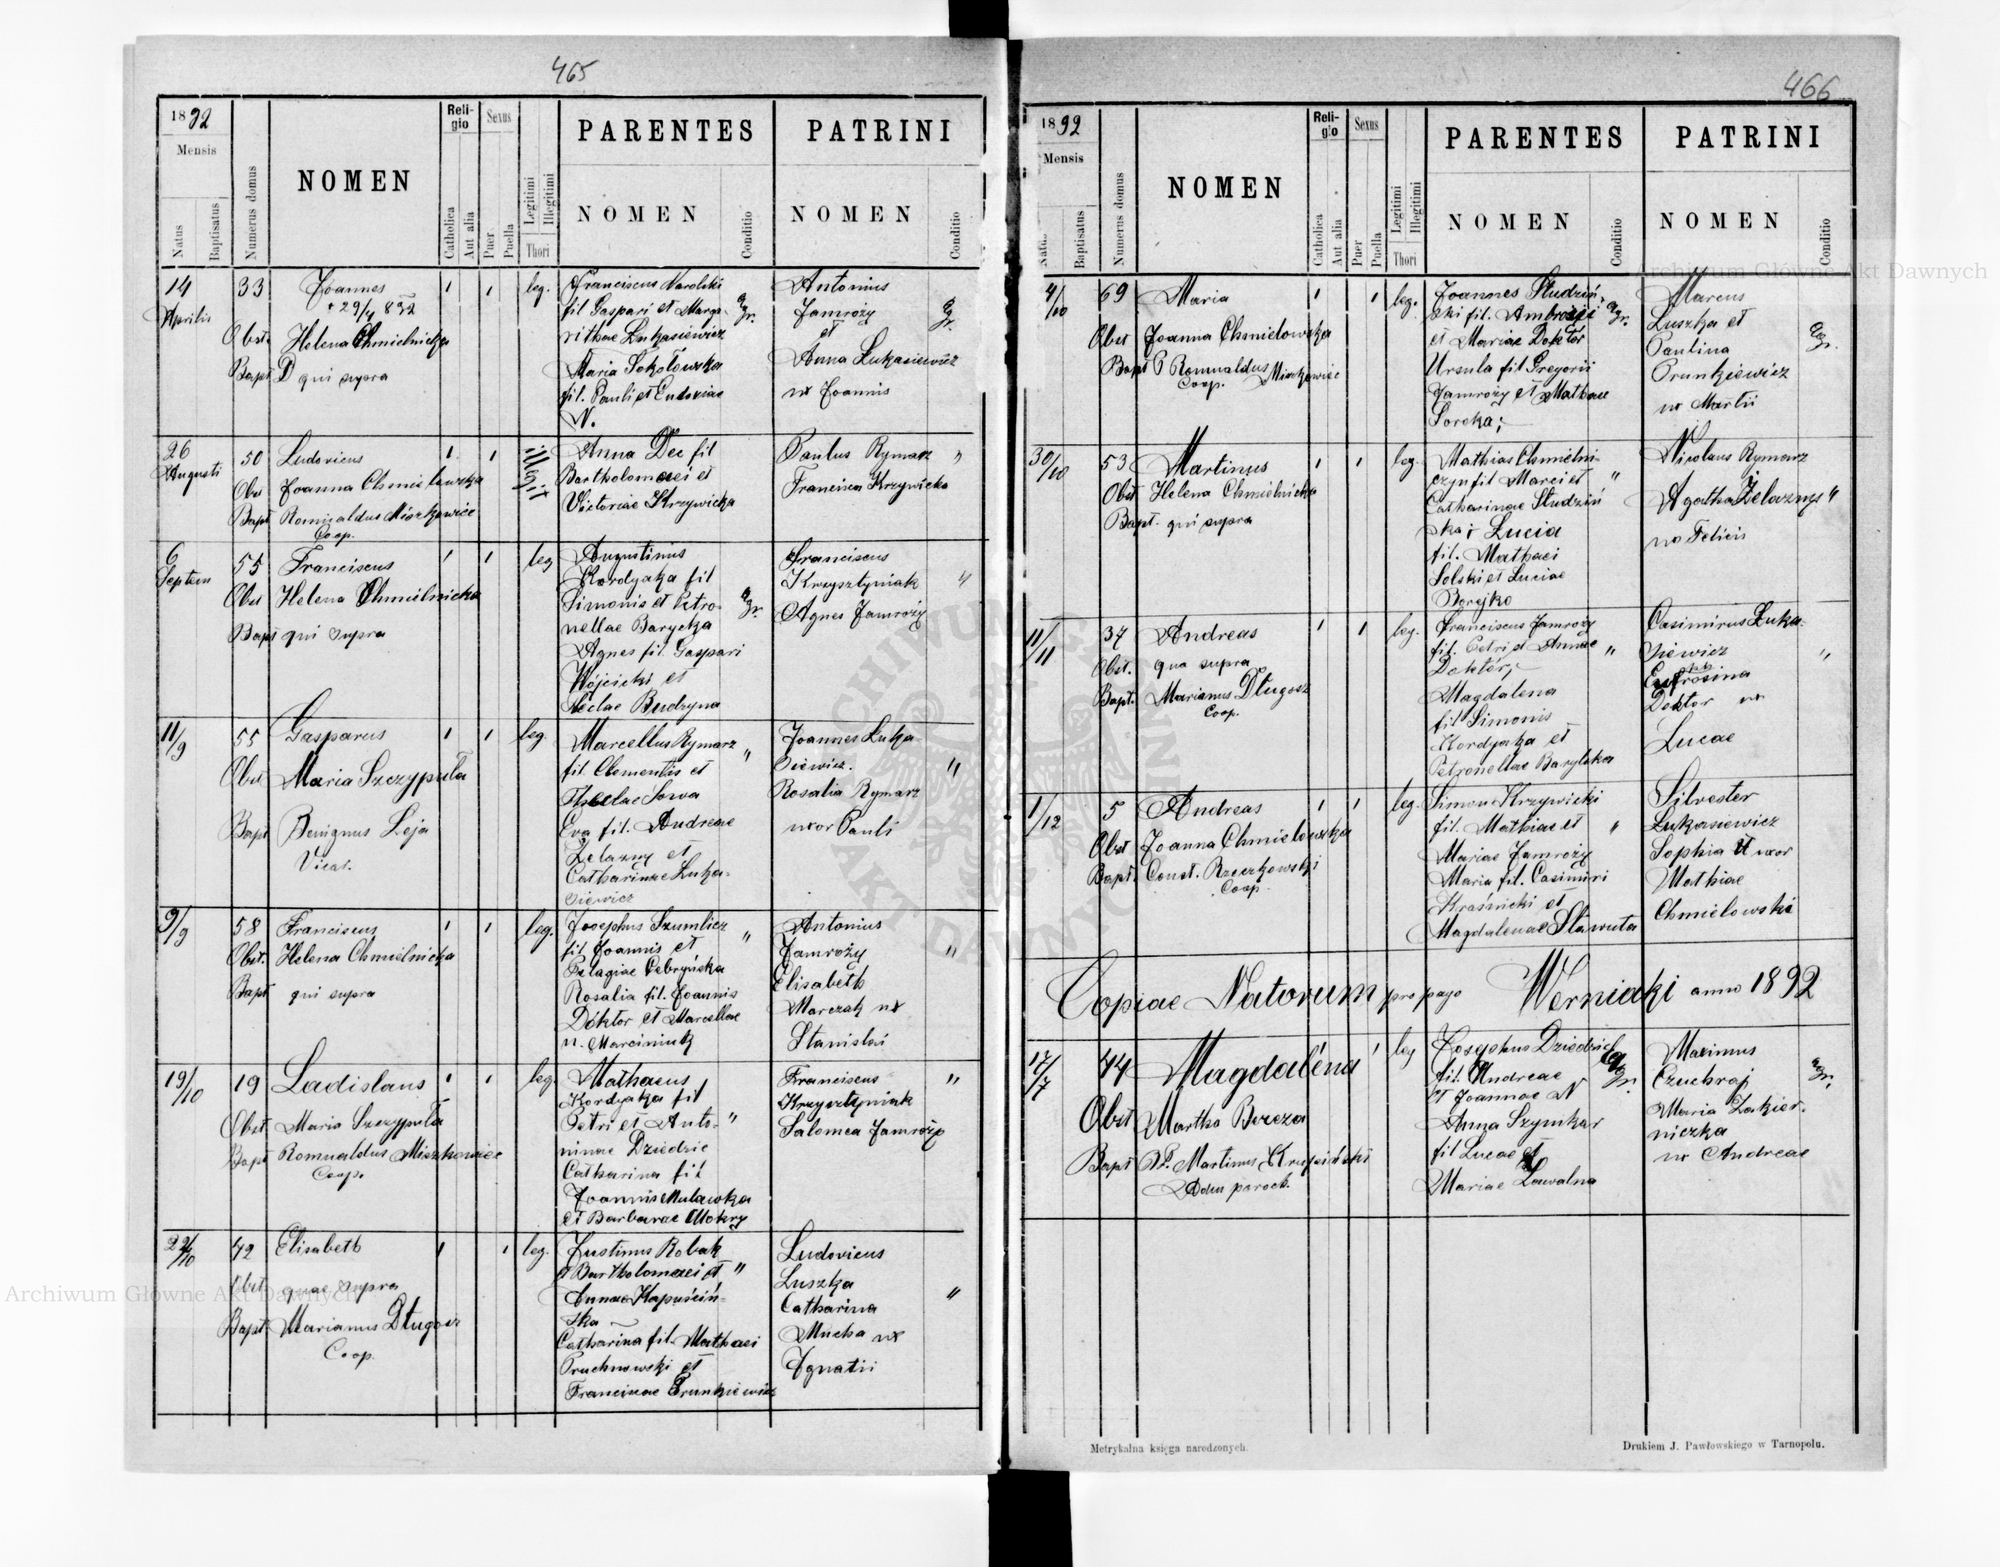 465
1892
Mensis
Natus
Baptisatus
Numerus domus
NOMEN
Reli-
gio
Catholica
Aut alia
Sexus
Puer
Puella
Legitimi
Illegitimi
Thori
PARENTES
NOMEN
Conditio
PATRINI
NOMEN
Conditio
14
Aprilis
33
Joannes
+ 29/4 892
Obst. Helena Chmielnicka
Bapt D qui supra
leg.
Franciscus Karolski
fil Gaspari et Marga-
rithae Lukasiewicz
Maria Sokołowska
fil. Pauli et Eudoxiae
N.
agr.
Antonius
Jamroży
et
Anna Lukasiewicz
ux Joannis
agr.
26
Augusti
50
Ludovicus
Obst Joanna Chmielowska
Bapt Romualdus Miszkowicz
Coop.
illegit
Anna Dec fil
Bartholomaei et
Victoriae Krzywicka
Paulus Rymarz "
Francisca Krzywicka
6
Septem
55
Franciscus
Obst Helena Chmielnicka
Bapt qui supra
leg
Augustinus
Kordyaka fil
Simonis et Petro-
nellae Barycka
Agnes fil. Gaspari
Wójcicki et
Teclae Budzyna
agr.
Franciscus
Krzysztyniak "
Agnes Jamroży
11/9
55
Gasparus
Obst Maria Szczypuła
Bapt Benignus Leja
Vicar.
leg.
Marcellus Rymarz
fil. Clementis et "
Theclae Sowa
Eva fil. Andreae
Żelazny et
Catharinae Luka-
siewicz
Joannes Luka-
siewicz. "
Rosalia Rymarz
uxor Pauli
9/9
58
Franciscus
Obst. Helena Chmielnicka
Bapt qui supra
leg.
Josephus Szumlicz
fil. Joannis et "
Pelagiae Cebryńska
Rosalia fil. Joannis
Doktor et Marcellae
n. Marciniuk
Antonius
Jamroży "
Elisabeth
Marczak ux
Stanislai
19/10
19
Ladislaus
Obst Maria Szczypuła
Bapt Romualdus Miszkowicz
Coop.
leg.
Mathaeus
Kordyaka fil
Petri et Anto- "
ninae Dziedzic
Catharina fil
Joannis Mulawka
et Barbarae Mokry
Franciscus "
Krzysztyniak
Salomea Jamroży
22/10
42
Elisabeth
Obst quae supra
Bapt. Marianus Długosz
Coop.
leg.
Justinus Robak
f Bartholomaei et "
Annae Kapuściń-
ska
Catharina fil. Mathaei
Pruchnowski et
Franciscae Prunkiewicz
Ludovicus
Luszka
Catharina "
Mucha ux
Ignatii
466
1892
Mensis
Natus
Baptisatus
Numerus domus
NOMEN
Reli-
gio
Catholica
Aut alia
Sexus
Puer
Puella
Legitimi
Illegitimi
Thori
PARENTES
NOMEN
Conditio
PATRINI
NOMEN
Conditio
4/10
69
Maria
Obst Joanna Chmielowska
Bapt P Romualdus Miszkowicz
Coop.
leg.
Joannes Studziń-
ski fil. Ambrosii
et Mariae Doktor
Ursula fil Gregorii
Jamroży et Mathae
Sorcka;
agr.
Marcus
Luszka et
Paulina
Prunkiewicz
ux Martii
agr.
30/10
53
Martinus
Obst Helena Chmielnicka
Bapt. qui supra
leg.
Mathias Chmielni-
czyn fil Marci et "
Catharinae Studziń
ska; Lucia
fil. Mathaei
Solski et Luciae
Borejko
Nicolaus Rymarz
Agatha Żelazny "
ux Felicis
11/11
37
Andreas
Obst. qua supra
Bapt. Marianus Długosz
Coop.
leg.
Franciscus Jamroży
fil. Petri et Annae "
Doktór;
Magdalena
fil Simonis
Kordyaka et
Petronellae Barylska
Casimirus Luka-
siewicz "
Eufrosina
Doktor ux
Lucae
1/12
5
Andreas
Obst Joanna Chmielowska
Bapt. Const. Rzeczkowski
Coop.
leg.
Simon Krzywicki
fil. Mathiae et "
Mariae Jamroży
Maria fil. Casimiri
Kraśnicki et
Magdalenae Sławuta
Silvester
Lukasiewicz
Sophia uxor
Mathiae
Chmielowski
Copiae Natorum pro pago Werniaki anno 1892
17/7
44
Magdaléna
Obst Martha Bereza
Bapt P. Martinus Krupiński
Adm paroch.
leg
Josephus Dziedzic
fil. Andreae
et Joannae N
Anna Szymkar
fil Lucae et
Mariae Lawalna
agr.
Maximus
Czuchraj
Maria Zakier-
niczka
ux Andreae
agr.
Metrykalna księga narodzonych.
Drukiem J. Pawłowskiego w Tarnopolu.
Archiwum Główne Akt Dawnych
Archiwum Główne Akt Dawnych